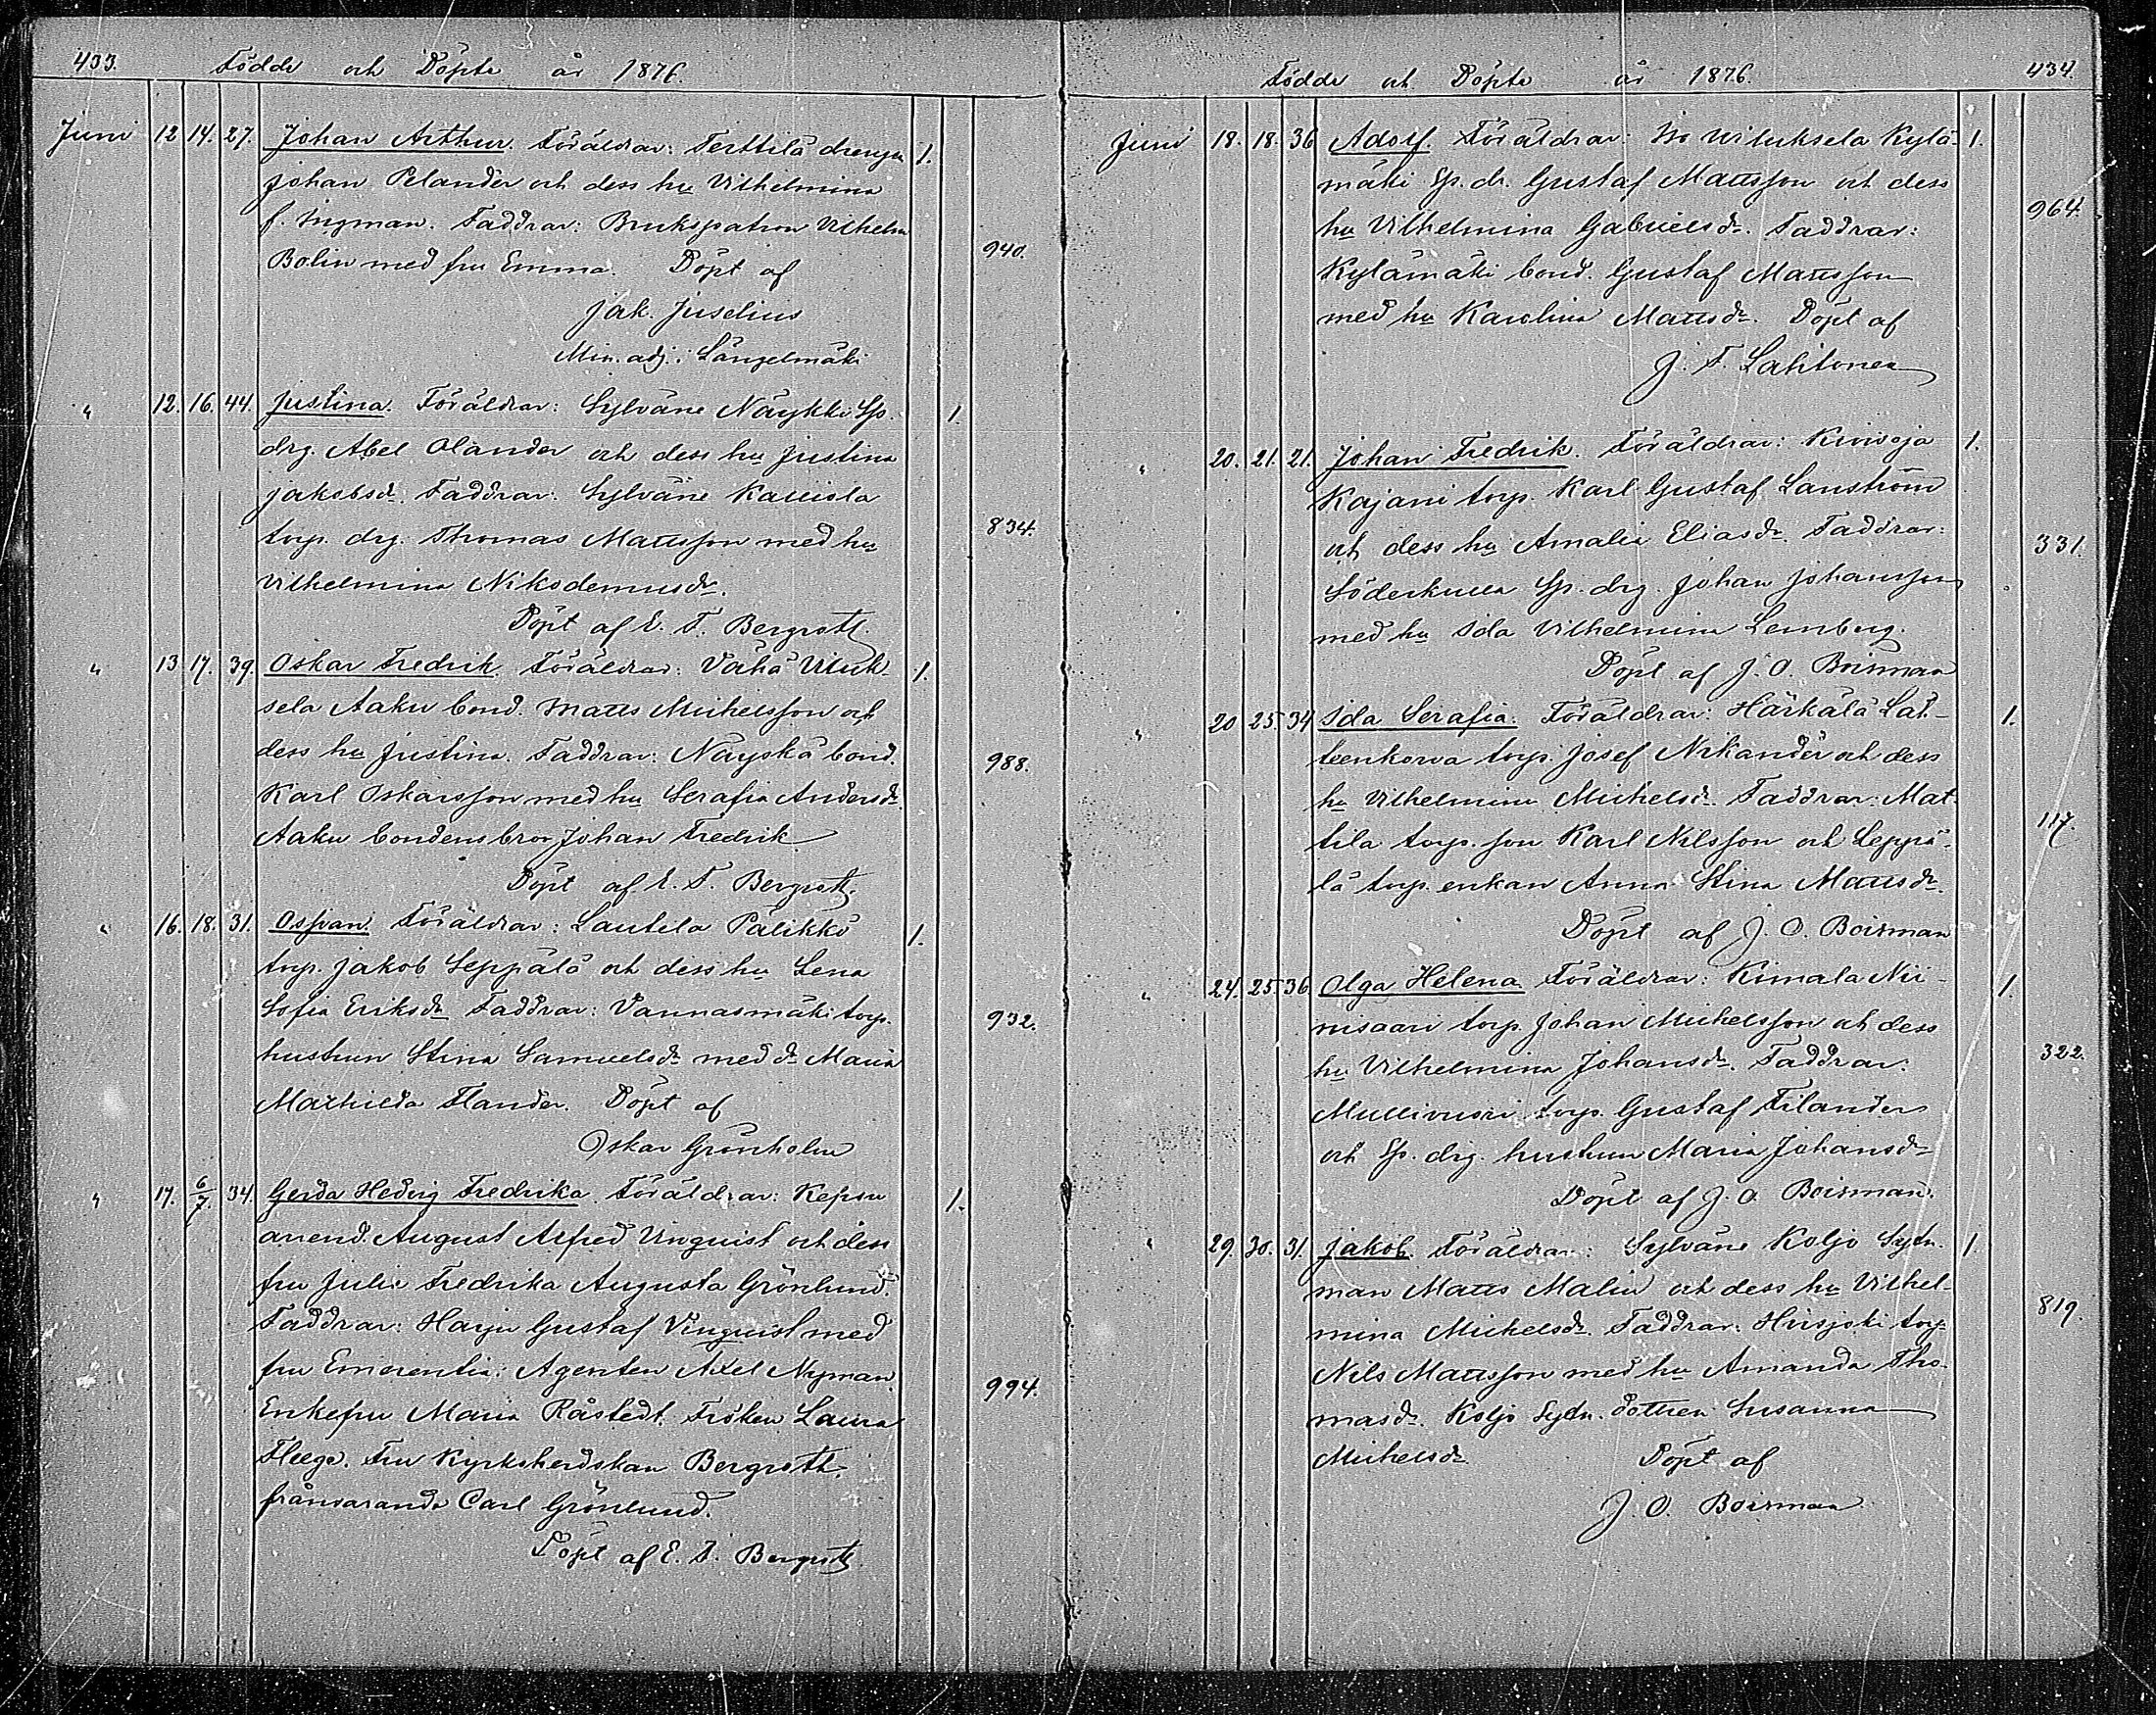 433. Födde och Döpte år 1876.
Juni 12 14. 27. Johan Arthur. Föräldrar: Terttilä drengen 1.
Johan Pelander och dess hu Vilhelmina
f. Ingman. Faddrar: Brukspatron Vilhelm
Bolin med fru Emma. Döpt af 940.
Jak. Juselius
Min. adj. i Längelmäki
" 12. 16. 44. Justina. Föräldrar: Sylväne Näykki Sp. 1.
drg. Abel Olander och dess hu Justina
Jakobsdr. Faddrar: Sylväne Kalliola
torp. drg. Thomas Mattsson med hu 834.
Vilhelmina Nikodemusdr.
Döpt af E. F. Bergroth.
" 13. 17. 39. Oskar Fredrik. Föräldrar: Vähä Uituk- 1.
sela Aaku bond. Matts Michelsson och
dess hu Justina. Faddrar: Näyskä bond. 988.
Karl Oskarsson med hu Serafia Andersdr.
Aaku bondens bror Johan Fredrik
Döpt af E. F. Bergroth.
" 16. 18. 31. Osjvan. Föräldrar: Lautela Pälikkö 1.
torp. Jakob Seppälä och dess hu Lena
Sofia Eriksdr. Faddrar: Vannasmäki torp. 932.
hustrun Stina Samuelsdr med dr Maria
Mathilda Flander. Döpt af
Oskar Grönholm
" 17. 6/7. 34. Gerda Hedvig Fredrika. Föräldrar: Kepsu 1.
arrend. August Alfred Vinquist och dess
fru Julie Fredrika Augusta Grönlund.
Faddrar: Harju Gustaf Vinquist med
fru Emerentia: Agenten Axel Nyman.
Enkefru Maria Råstedt. Fröken Laura 994.
Fleege. Fru Kyrkoherdskan Bergroth.
frånvarande Carl Grönlund.
Döpt af E. F. Bergroth.
Födde och Döpte år 1876. 434.
Juni 18. 18. 36 Adolf. Föräldrar: Iso Uituksela Kylä- 1.
mäki Sp. dr. Gustaf Mattsson och dess
hu Vilhelmina Gabrielsdr. Faddrar: 964.
Kylämäki bond. Gustaf Mattsson
med hu Karolina Mattsdr. Döpt af
J. F. Lahtonen
" 20. 21. 21. Johan Fredrik. Föräldrar: Kivioja 1.
Kajani torp. Karl Gustaf Lanström
och dess hu Amalia Eliasdr. Faddrar: 331.
Söderkulla Sp. drg. Johan Johansson
med hu Ida Vilhelmina Lemberg.
Döpt af J. O. Boisman
" 20 25. 34 Ida Serafia. Föräldrar: Härkälä Lat- 1.
teenkorva torp. Josef Nikander och dess
hu Vilhelmina Michelsdr. Faddrar: Mat-
tila torp. son Karl Nilsson och Leppä- 117.
lä torp. enkan Anna Stina Mattsdr.
Döpt af J. O. Boisman
" 24. 25. 36. Olga Helena. Föräldrar: Kimala Nii- 1.
nisaari torp. Johan Michelsson och dess
hu Vilhelmina Johansdr. Faddrar: 322.
Mullivuori torp. Gustaf Filander
och Sp. drg. hustrun Maria Johansdr
Döpt af J. O. Boisman.
" 29. 30. 31. Jakob. Föräldrar: Sylväne Koljo Sytn. 1.
man Matts Malin och dess hu Vilhel-
mina Michelsdr. Faddrar: Hirsjoki torp 819.
Nils Mattsson med hu Amanda Tho-
masdr. Koljo Sytn. dottren Susanna
Michelsdr. Döpt af
J. O. Boisman